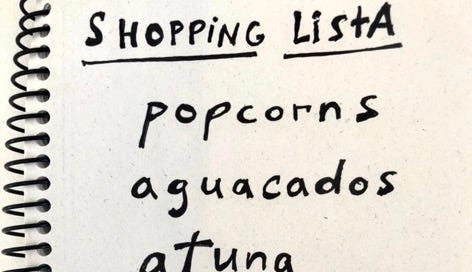 SHOPPING LiStA
popcorns
aguacados
atuna